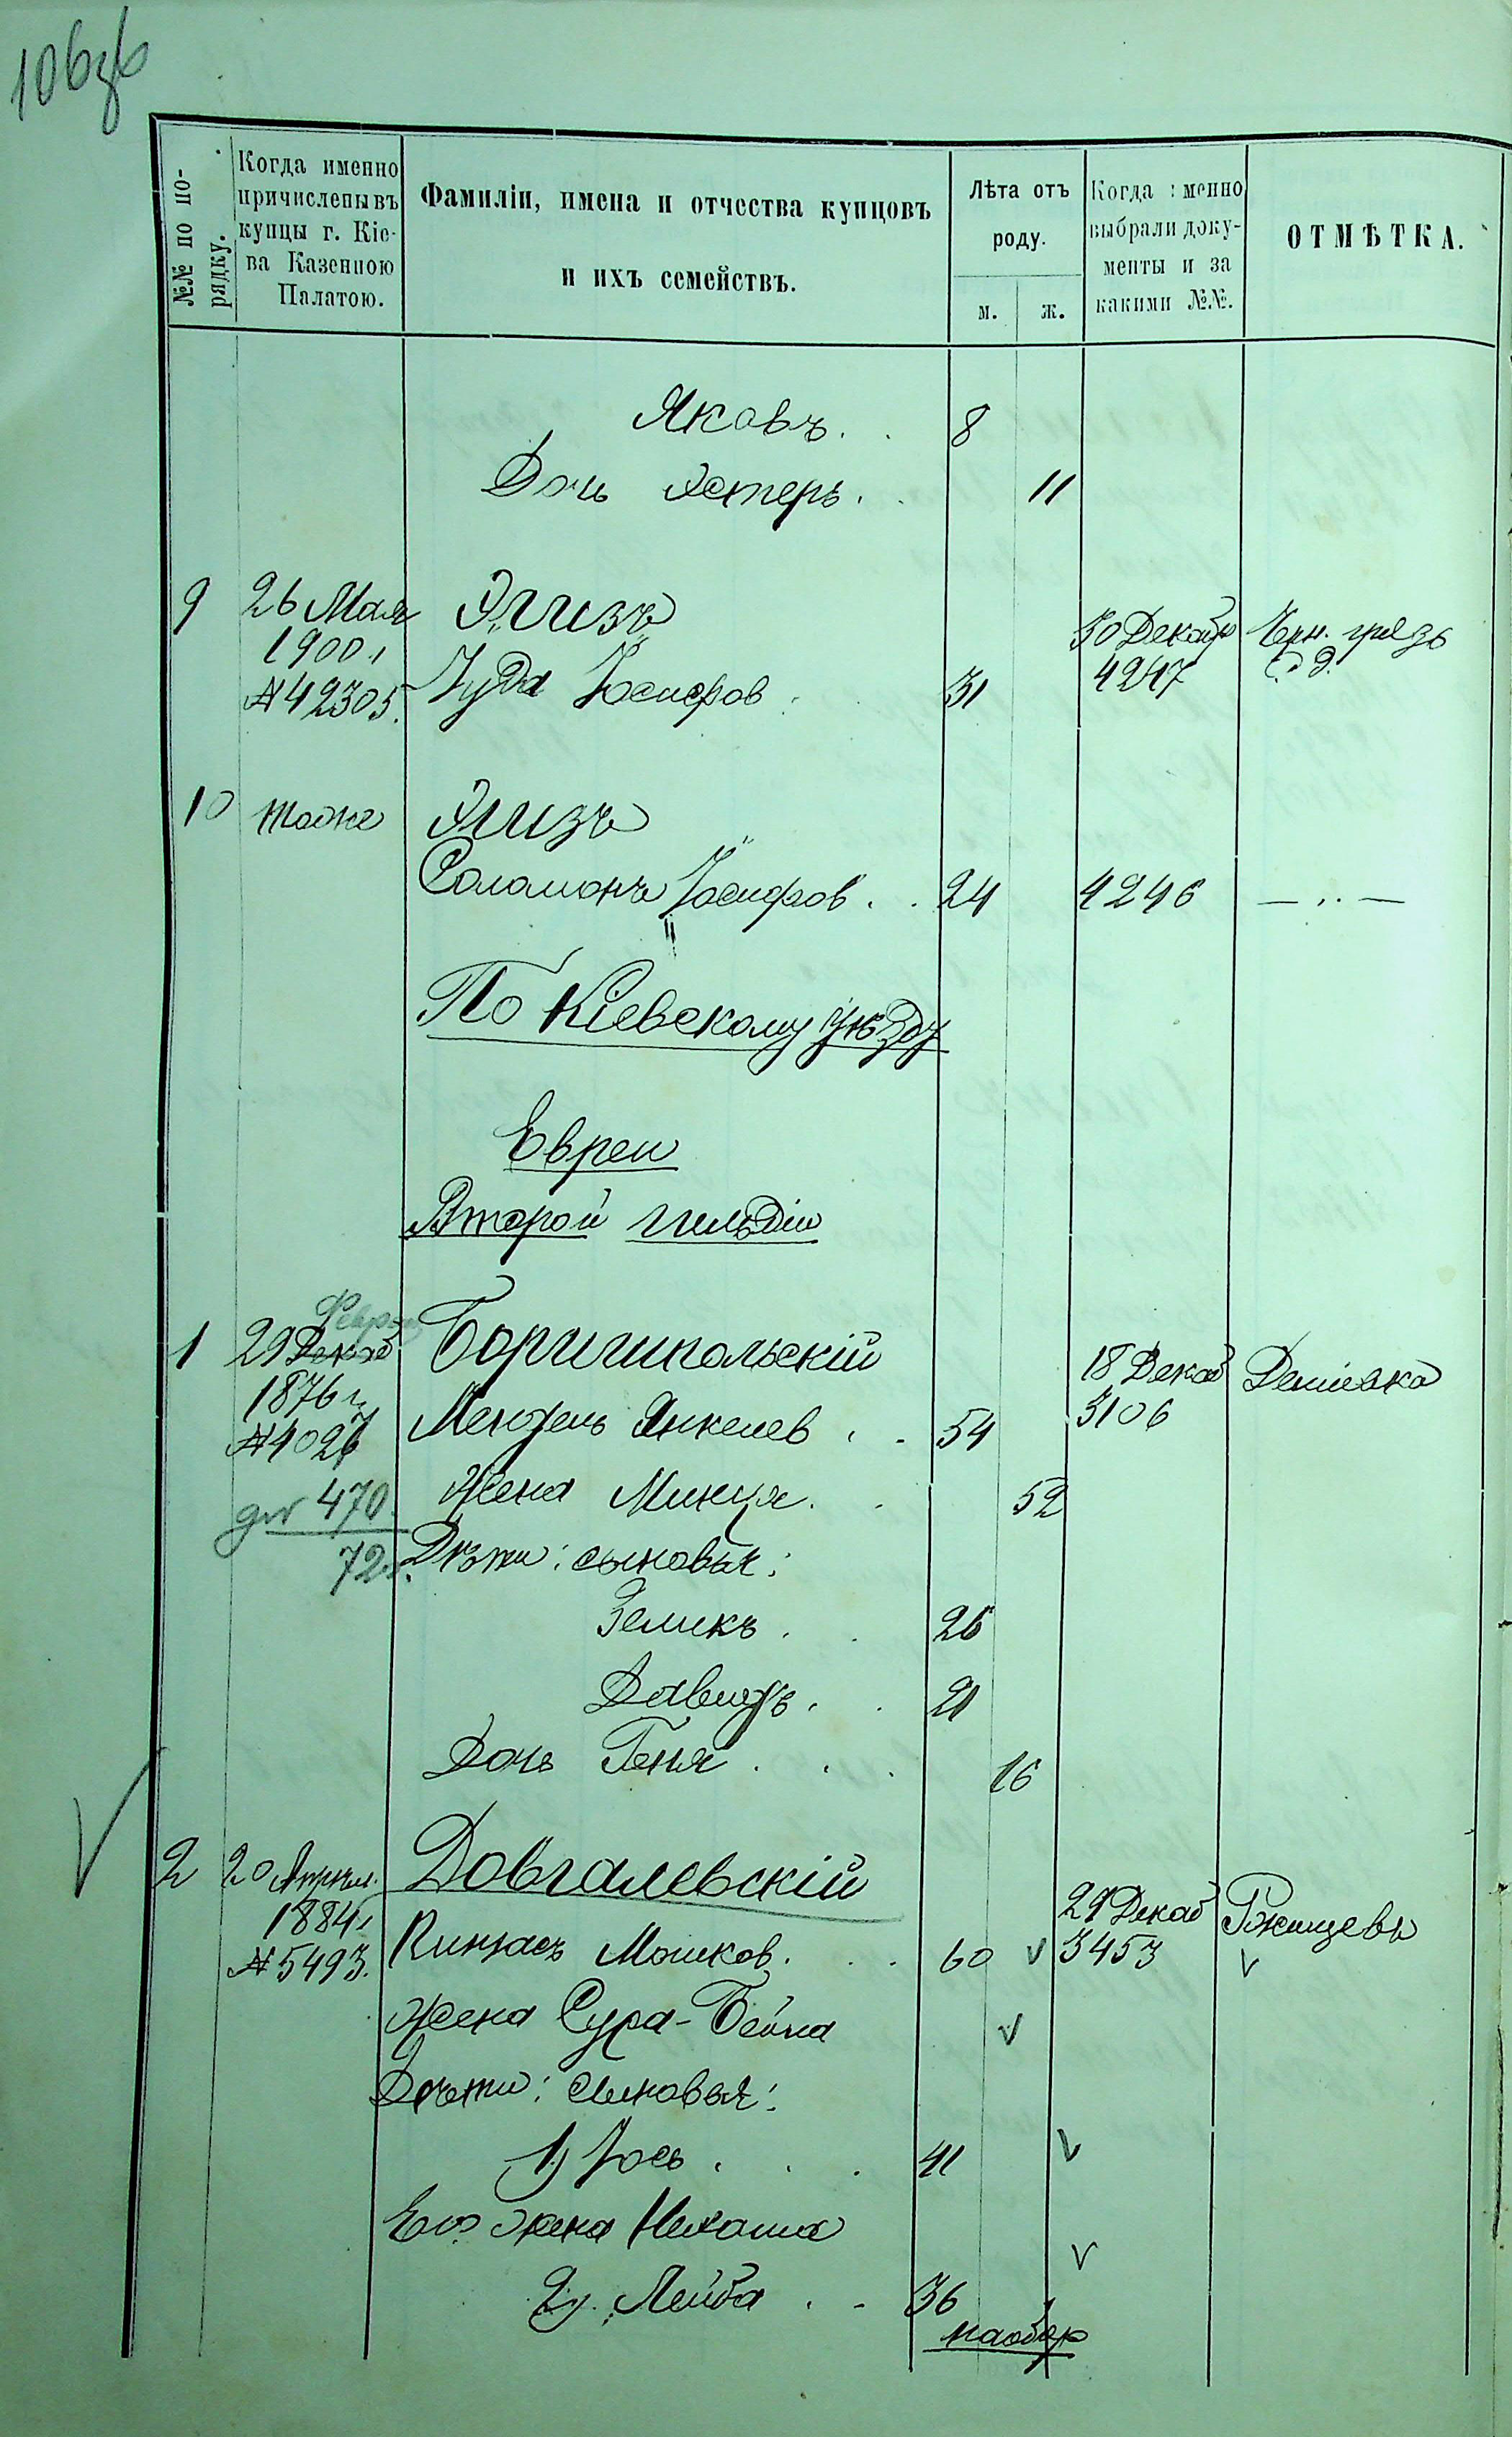 106зв
№№ по по-
рядку.
Когда именно
причислены въ
купцы г. Кіе-
ва Казенною
Палатою.
Фамиліи, имена и отчества купцовъ
и ихъ семействъ.
Лѣта отъ
роду.
м. ж.
Когда именно
выбрали доку-
менты и за
какими №№.
ОТМѢТКА.
Яковъ . . 8
Дочь Эстеръ . . 11
9 26 Мая Эйгизъ 30 Декабр
1900 г
№42305. Іуда Іосифов . 31 4247
10 тоже
Соломонъ Іосифов . . 24 4246 — „ —
По Кіевскому уѣзду
Евреи
Второй гильдіи
Февр
1 29 Декаб Боришпольскій 18 Декаб Деміевка
1876 г
№4027 Мендель Янкелев . . 54 3106
Жена Минця . . 52
470
72
Дѣти: сыновья:
Зеликъ . . 26
Давидъ . . 21
Дочь Геня . . . 16
2 20 Апрѣл. Довгалевскій 29 Декаб Ржищевъ
1884 г
№5493. Пинхасъ Мошков . . . 60 V 3453 V
жена Сура-Бейла V
Дѣти: сыновья:
1) Іось . . . 41 V
Его жена Нехама V
2) Лейба . . 36
наобор